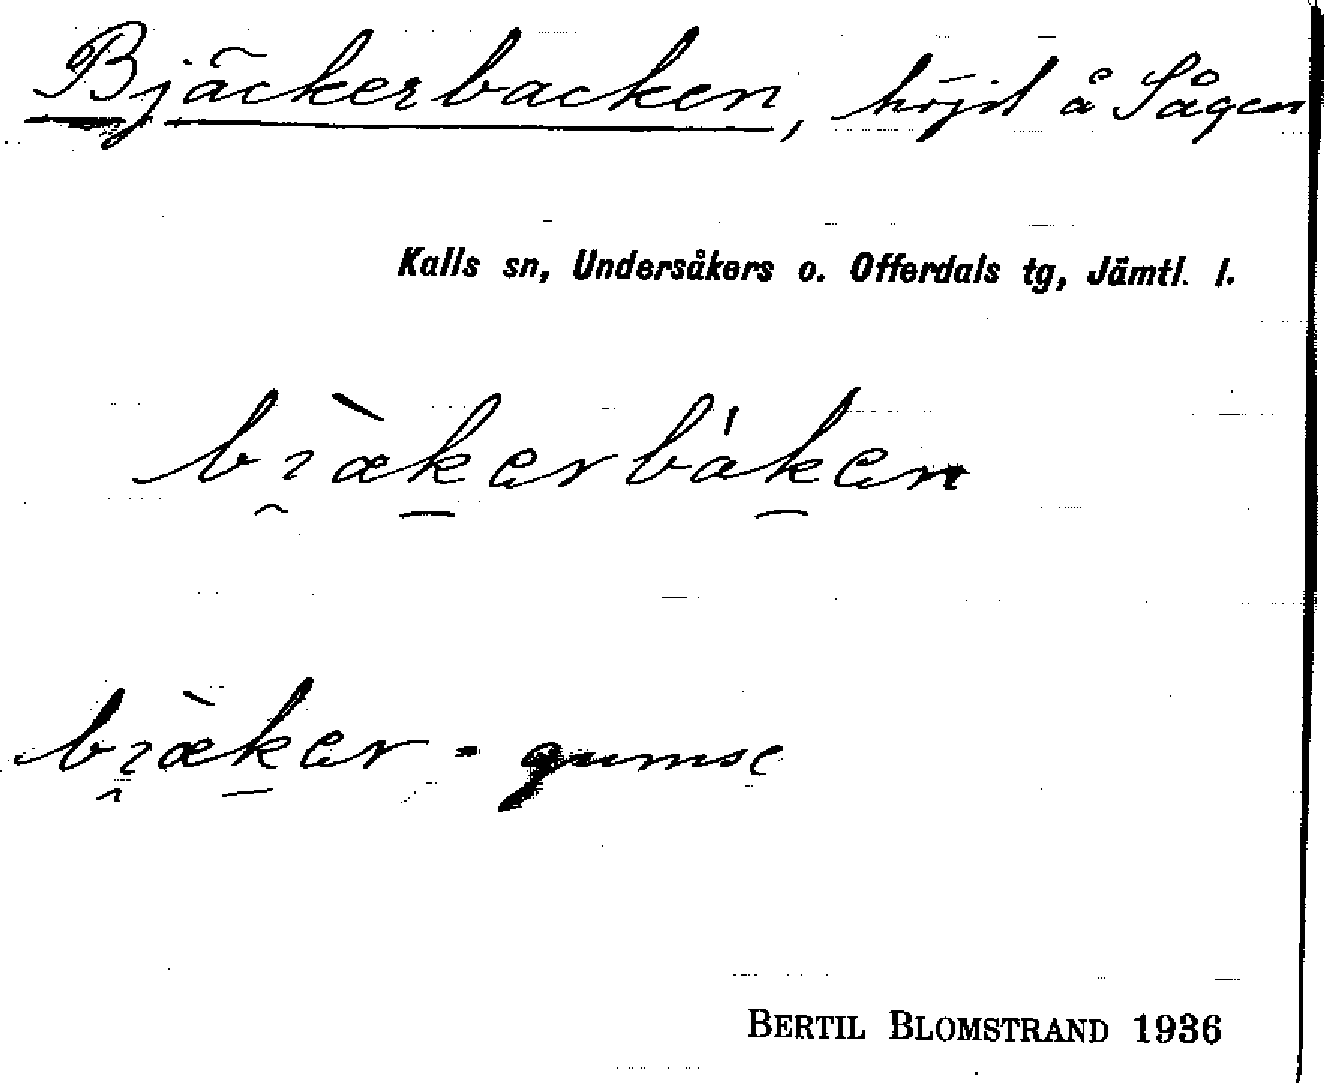 Bjäckerbacken, höjd å Sågen
Kalls sn, Undersåkers o. Offerdals tg, Jämtl. l.
bı̯æ̀k̲erbák̲en
bı̯æ̀k̲er - gumse
BERTIL BLOMSTRAND 1936